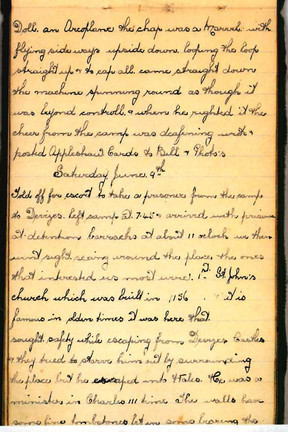 Doll. an Aroplane the chap was a Marvel with
flying sideways upside down, looping the loop
straight up & to cap all came straight down
the machine spinning round as though it
was beyond controll, & when he righted it the
cheer from the camp was deafining
posted Appleshaw Cards to Bell & Photo's
Saturday June 9th
Told off for escort to take a prisoner from the camp
to Devizes. left camp at 7.45 & arrived with prisoner
at detention barracks at about 11 oclock we then
went sight seeing around the place the ones
that interested us most were: 1st St John's
church which was built in 1136 it is
famous in olden times it was here that
sought safty while escaping from Devizes Castle
& they tried to starve him out by surrounding
the place but he escaped into Wales. He was a
minister in Charles III time. The walls have
some fine tombstones let in some bearing the